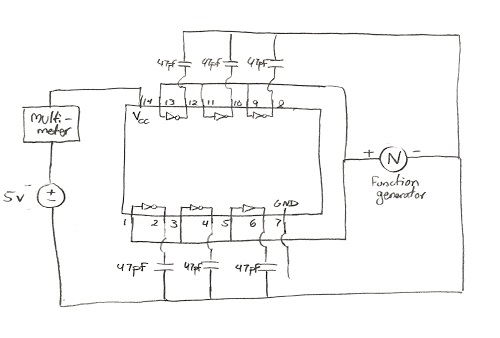 47pF 47pF 47pF
14 13 12 11 10 9 8
Vcc
Multi-
meter
+ N -
Function
generator
5V
+
-
GND
1 2 3 4 5 6 7
47pF 47pF 47pF